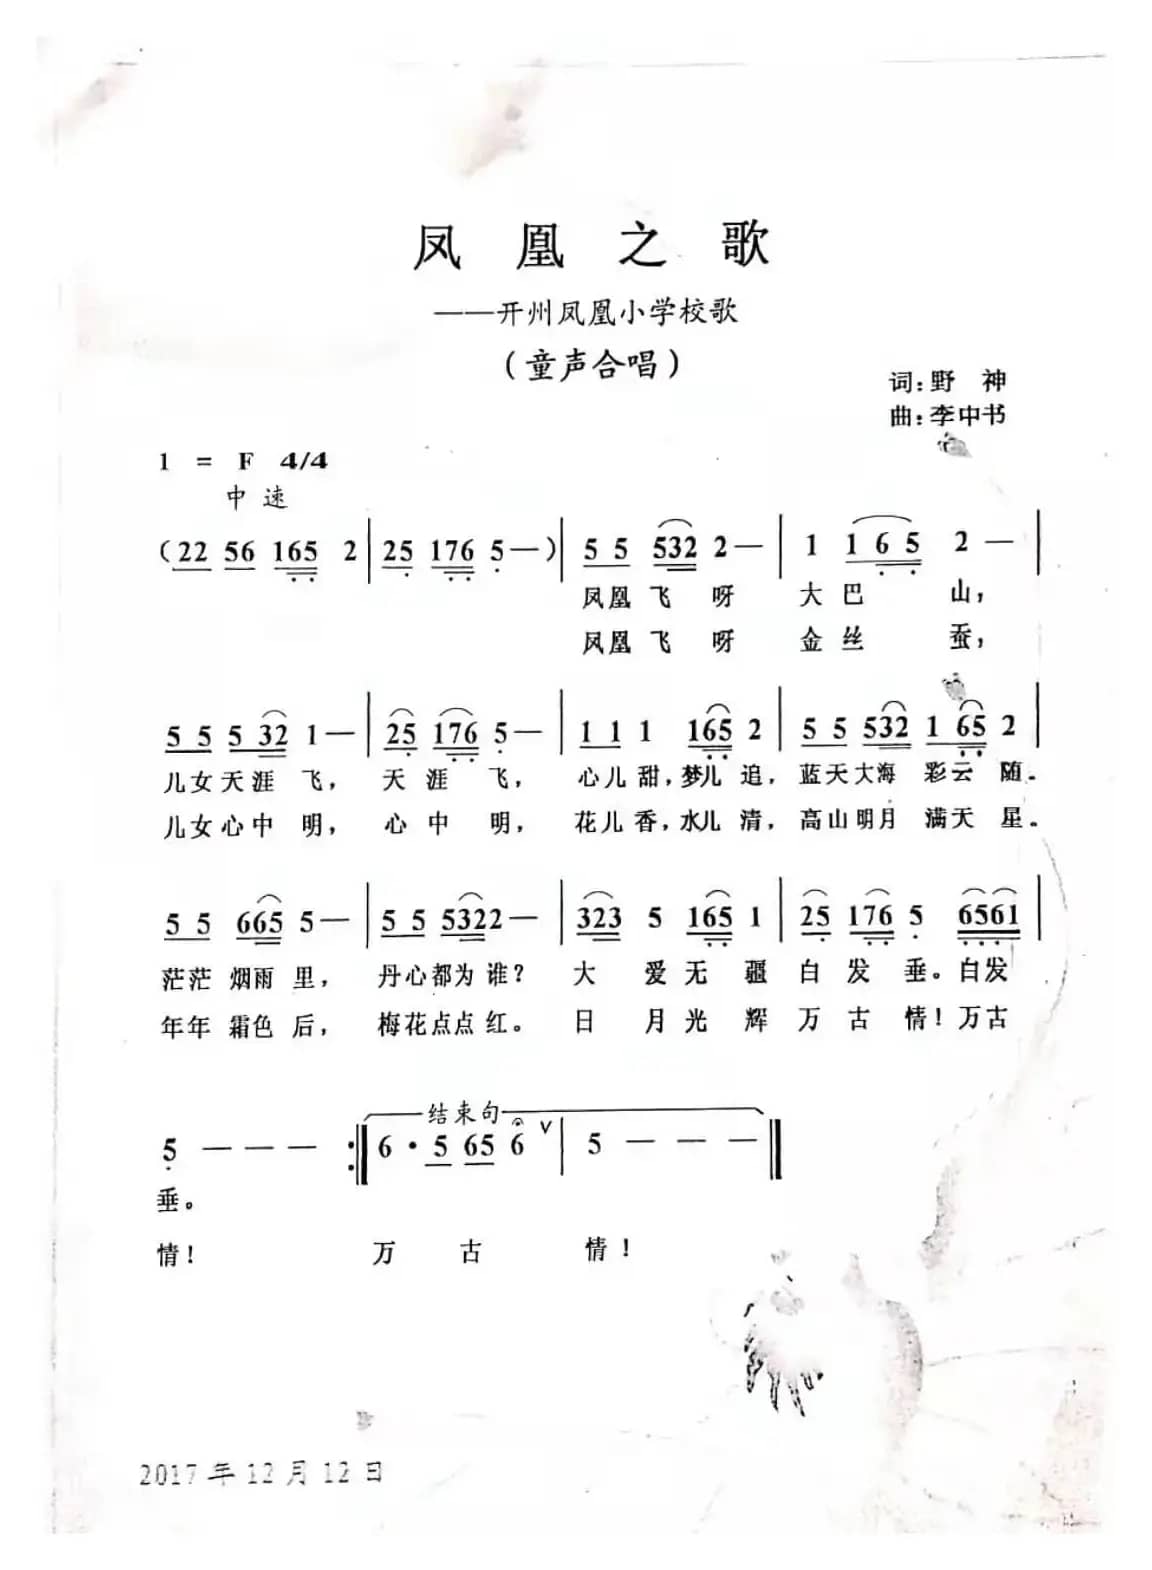 凤 凰 之 歌
——开州凤凰小学校歌
（童声合唱）
词：野 神
曲：李中书
1 = F 4/4
中 速
（22 56 165 2 | 25 176 5 — ）| 5 5 532 2 — | 1 1 6 5 2 — |
凤凰 飞 呀 大 巴 山，
凤凰 飞 呀 金 丝 蚕，
5 5 5 32 1 — | 25 176 5 — | 1 1 1 165 2 | 5 5 532 1 65 2 |
儿女天涯 飞， 天 涯 飞， 心儿甜，梦儿 追，蓝天大海 彩云 随。
儿女心中 明， 心 中 明， 花儿香，水儿 清，高山明月 满天 星。
5 5 665 5 — | 5 5 5322 — | 323 5 165 1 | 25 176 5 6561 |
茫茫 烟雨 里， 丹心都为 谁？ 大 爱 无 疆 白 发 垂。白发
年年 霜色 后， 梅花点点 红。 日 月 光 辉 万 古 情！万古
结束句
5 — — — :‖ 6 · 5 65 6 V | 5 — — — ‖
垂。
情！ 万 古 情！
2017 年 12 月 12 日